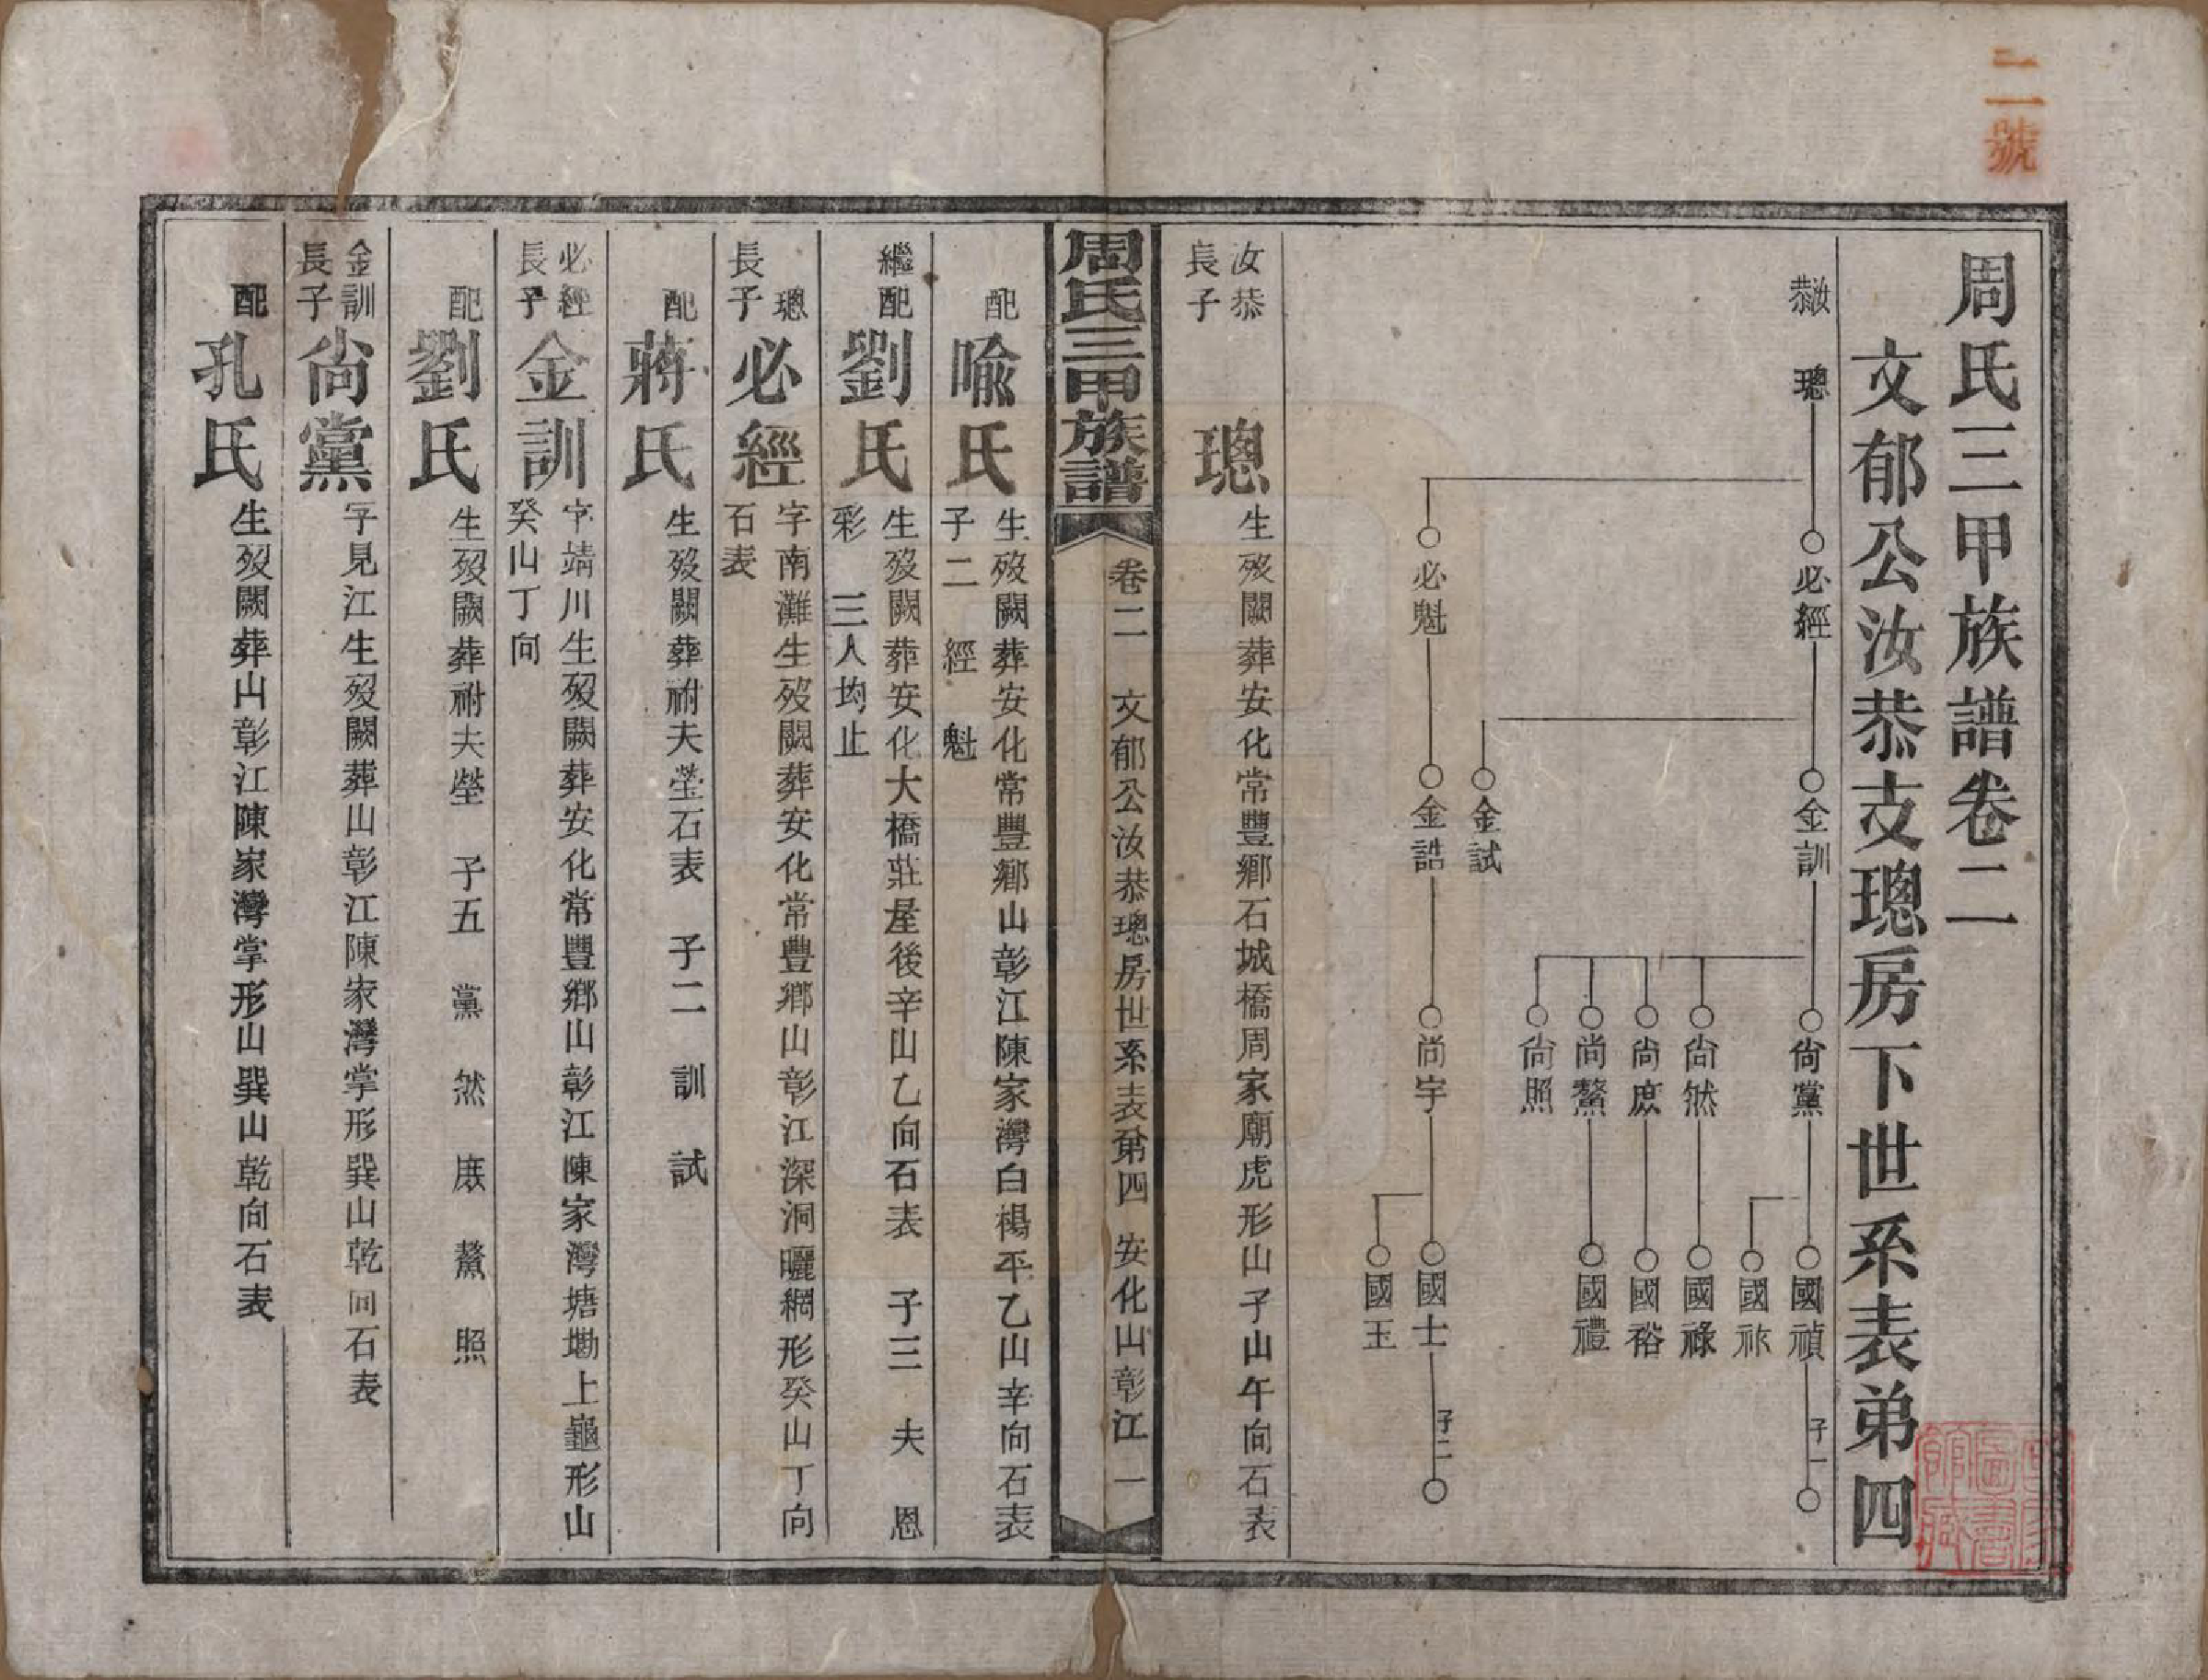 二號
周氏三甲族譜卷二
文郁公汝恭支璁房下世系表弟四
汝恭 璁
必經
必魁
金訓
金試
金誥
尙黨
尙然
尙庶
尙鰲
尙照
尙宇
國禎
國祢
國祿
國裕
國禮
國士
國玉
子一
子二
汝恭長子
璁
生歿闕葬安化常豐鄉石城橋周家廟虎形山子山午向石表
周氏三甲族譜
卷二 文郁公汝恭璁房世系表第四 安化山彰江 一
配
喩氏
生歿闕葬安化常豐鄉山彰江陳家灣白楊平乙山辛向石表
子二 經 魁
繼配
劉氏
生歿闕葬安化大橋莊屋後辛山乙向石表 子三 夫 恩
彩 三人均止
璁長子
必經
字南灘生歿闕葬安化常豐鄉山彰江深洞曬網形癸山丁向
石表
配
蔣氏
生歿闕葬祔夫塋石表 子二 訓 試
必經長子
金訓
字靖川生歿闕葬安化常豐鄉山彰江陳家灣塘墈上龜形山
癸山丁向
配
劉氏
生歿闕葬祔夫塋 子五 黨 然 庶 鰲 照
金訓長子
尙黨
字見江生歿闕葬山彰江陳家灣掌形巽山乾向石表
配
孔氏
生歿闕葬山彰江陳家灣掌形山巽山乾向石表